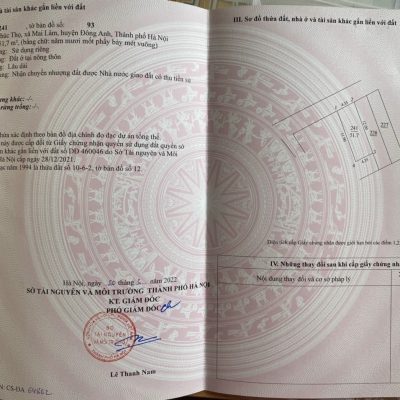 và tài sản khác gắn liền với đất
241 tờ bản đồ số: 93
Phúc Thọ, xã Mai Lâm, huyện Đông Anh, Thành phố Hà Nội
51,7 m², (bằng chữ: năm mươi mốt phẩy bảy mét vuông)
Sử dụng riêng
Đất ở tại nông thôn
Lâu dài
Nhận chuyển nhượng đất được Nhà nước giao đất có thu tiền sử
dựng khác: -/-.
rừng trồng: -/-.
thửa xác định theo bản đồ địa chính đo đạc dự án tổng thể.
này được cấp đổi từ Giấy chứng nhận quyền sử dụng đất quyền sở
khác gắn liền với đất số DD 460046 do Sở Tài nguyên và Môi
Hà Nội cấp ngày 28/12/2021.
đạc năm 1994 là thửa đất số 10-6-2, tờ bản đồ số 12.
Hà Nội, ngày tháng năm 2022
SỞ TÀI NGUYÊN VÀ MÔI TRƯỜNG THÀNH PHỐ HÀ NỘI
KT. GIÁM ĐỐC
PHÓ GIÁM ĐỐC
SỞ
TÀI NGUYÊN
Lê Thanh Nam
CS-ĐA
III. Sơ đồ thửa đất, nhà ở và tài sản khác gắn liền với đất
241
51.7
227
Diện tích cấp Giấy chứng nhận được giới hạn bởi các điểm 1,2
IV. Những thay đổi sau khi cấp giấy chứng nhận
Nội dung thay đổi và cơ sở pháp lý